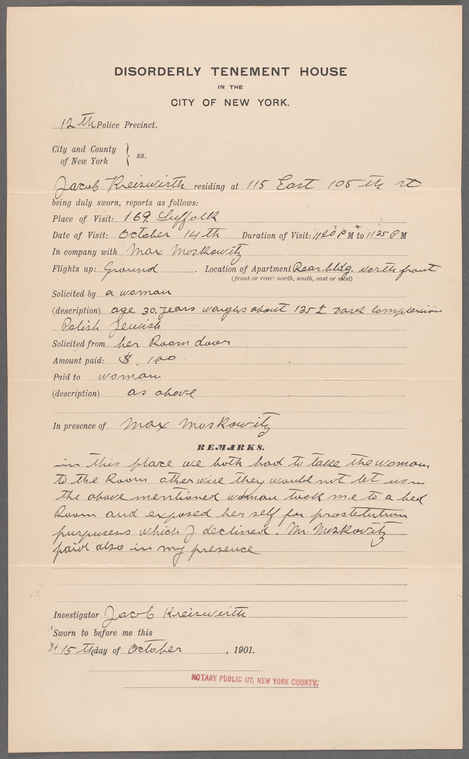 DISORDERLY TENEMENT HOUSE
IN THE
CITY OF NEW YORK.
12th Police Precinct.
City and County
of New York } ss.
Jacob Kreiswirth residing at 115 East 105th st
being duly sworn, reports as follows:
Place of Visit: 169 Suffolk
Date of Visit: October 14th Duration of Visit: 1100 P M to 1125 P M
In company with Max Moskowitz
Flights up: Ground . Location of Apartment Rear bldg. north front
(front or rear: north, south, east or west)
Solicited by a woman
(description) age 30 years waighs about 125 £ Dark complexion
Polish Jewish
Solicited from her Room door
Amount paid: $. 1.00
Paid to woman
(description) as above
In presence of Max Moskowitz
REMARKS.
in this place we both had to take the woman
to the Room otherwise they would not let us in
the above mentioned woman took me to a bed
Room and exposed her self for prostetution
purpusess which I declined. Mr. Moskovitz
paid also in my presence
Investigator Jacob Kreiswirth
Sworn to before me this
15th day of October , 1901.
NOTARY PUBLIC 117, NEW YORK COUNTY.